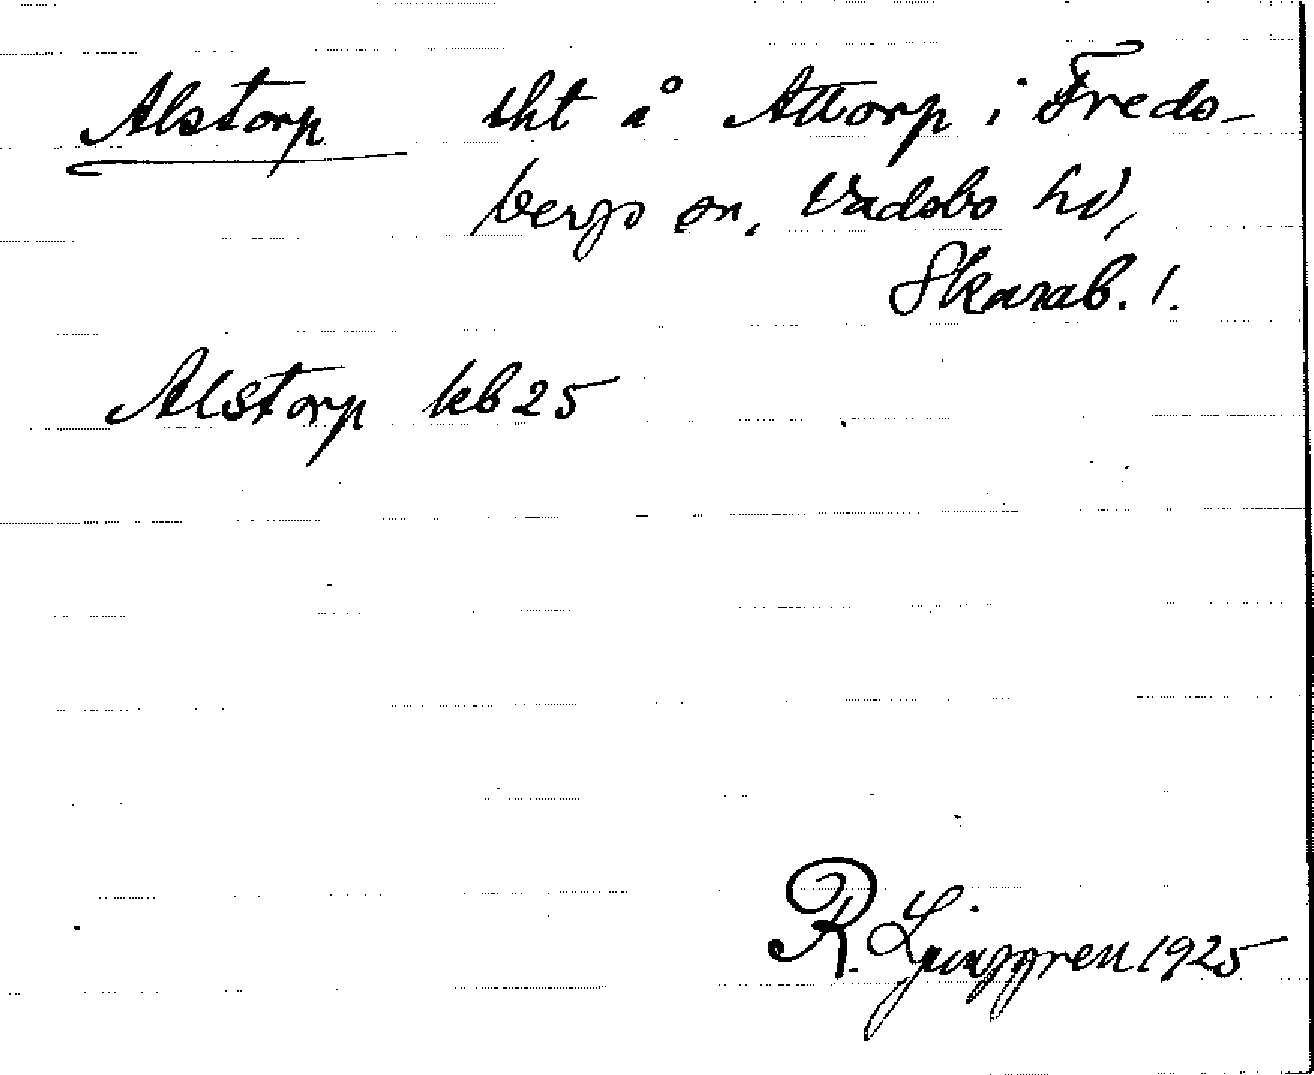 Alstorp tht å Attorp i Freds-
bergs sn, Vadsbo hd,
Skarab. l.
Alstorp kb 25
R. Ljunggren 1925